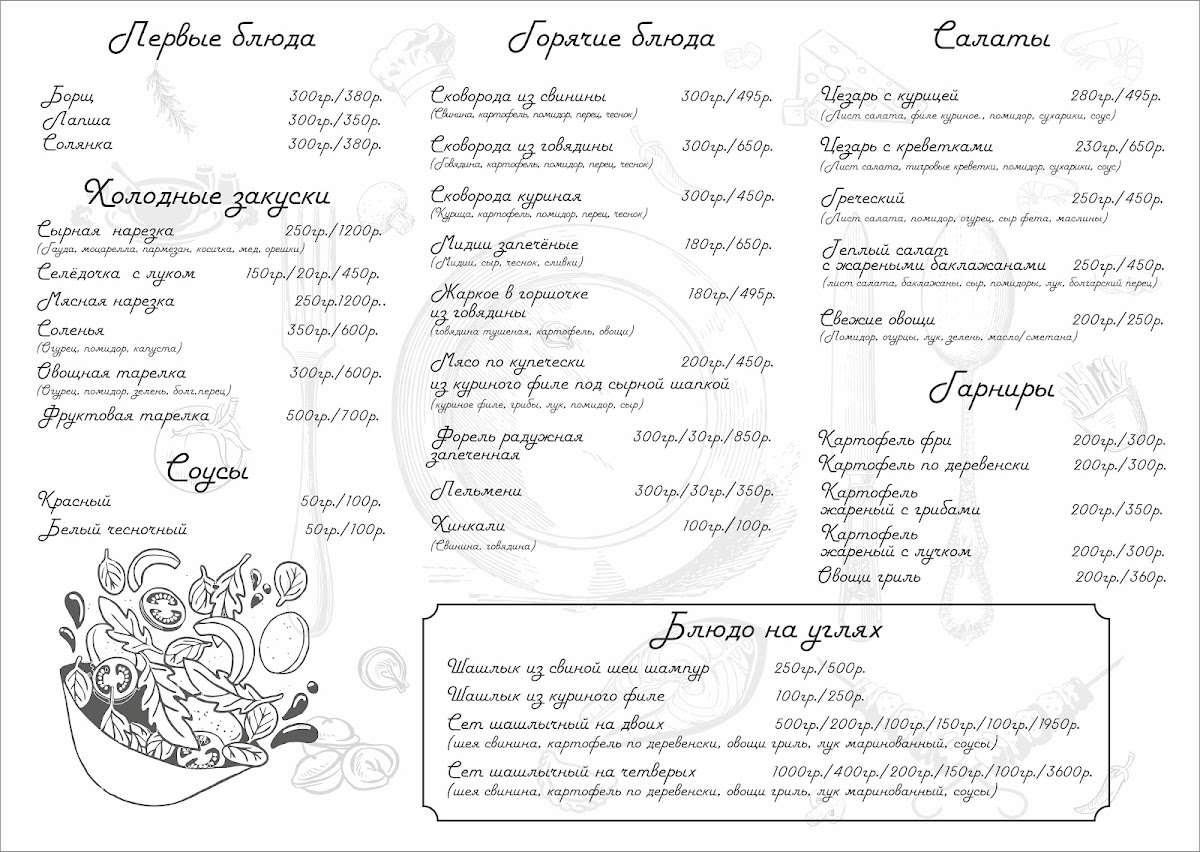 Первые блюда
Борщ 300гр./380р.
Лапша 300гр./350р.
Солянка 300гр./380р.
Холодные закуски
Сырная нарезка 250гр./1200р.
(Гауда, моцарелла, пармезан, косичка, мед, орешки)
Селёдочка с луком 150гр./20гр./450р.
Мясная нарезка 250гр.1200р..
Соленья 350гр./600р.
(Огурец, помидор, капуста)
Овощная тарелка 300гр./600р.
(Огурец, помидор, зелень, болг.перец)
Фруктовая тарелка 500гр./700р.
Соусы
Красный 50гр./100р.
Белый чесночный 50гр./100р.
Горячие блюда
Сковорода из свинины 300гр./495р.
(Свинина, картофель, помидор, перец, чеснок)
Сковорода из говядины 300гр./650р.
(Говядина, картофель, помидор, перец, чеснок)
Сковорода куриная 300гр./450р.
(Курица, картофель, помидор, перец, чеснок)
Мидии запечёные 180гр./650р.
(Мидии, сыр, чеснок, сливки)
Жаркое в горшочке 180гр./495р.
из говядины
(говядина тушеная, картофель, овощи)
Мясо по купечески 200гр./450р.
из куриного филе под сырной шапкой
(куриное филе, грибы, лук, помидор, сыр)
Форель радужная 300гр./30гр./850р.
запеченная
Пельмени 300гр./30гр./350р.
Хинкали 100гр./100р.
(Свинина, говядина)
Салаты
Цезарь с курицей 280гр./495р.
(Лист салата, филе куриное., помидор, сухарики, соус)
Цезарь с креветками 230гр./650р.
(Лист салата, тигровые креветки, помидор, сухарики, соус)
Греческий 250гр./450р.
(Лист салата, помидор, огурец, сыр фета, маслины)
Теплый салат
с жареными баклажанами 250гр./450р.
(лист салата, баклажаны, сыр, помидоры, лук, болгарский перец)
Свежие овощи 200гр./250р.
(Помидор, огурцы, лук, зелень, масло/сметана)
Гарниры
Картофель фри 200гр./300р.
Картофель по деревенски 200гр./300р.
Картофель
жареный с грибами 200гр./350р.
Картофель
жареный с лучком 200гр./300р.
Овощи гриль 200гр./360р.
Блюдо на углях
Шашлык из свиной шеи шампур 250гр./500р.
Шашлык из куриного филе 100гр./250р.
Сет шашлычный на двоих 500гр./200гр./100гр./150гр./100гр./1950р.
(шея свинина, картофель по деревенски, овощи гриль, лук маринованный, соусы)
Сет шашлычный на четверых 1000гр./400гр./200гр./150гр./100гр./3600р.
(шея свинина, картофель по деревенски, овощи гриль, лук маринованный, соусы)